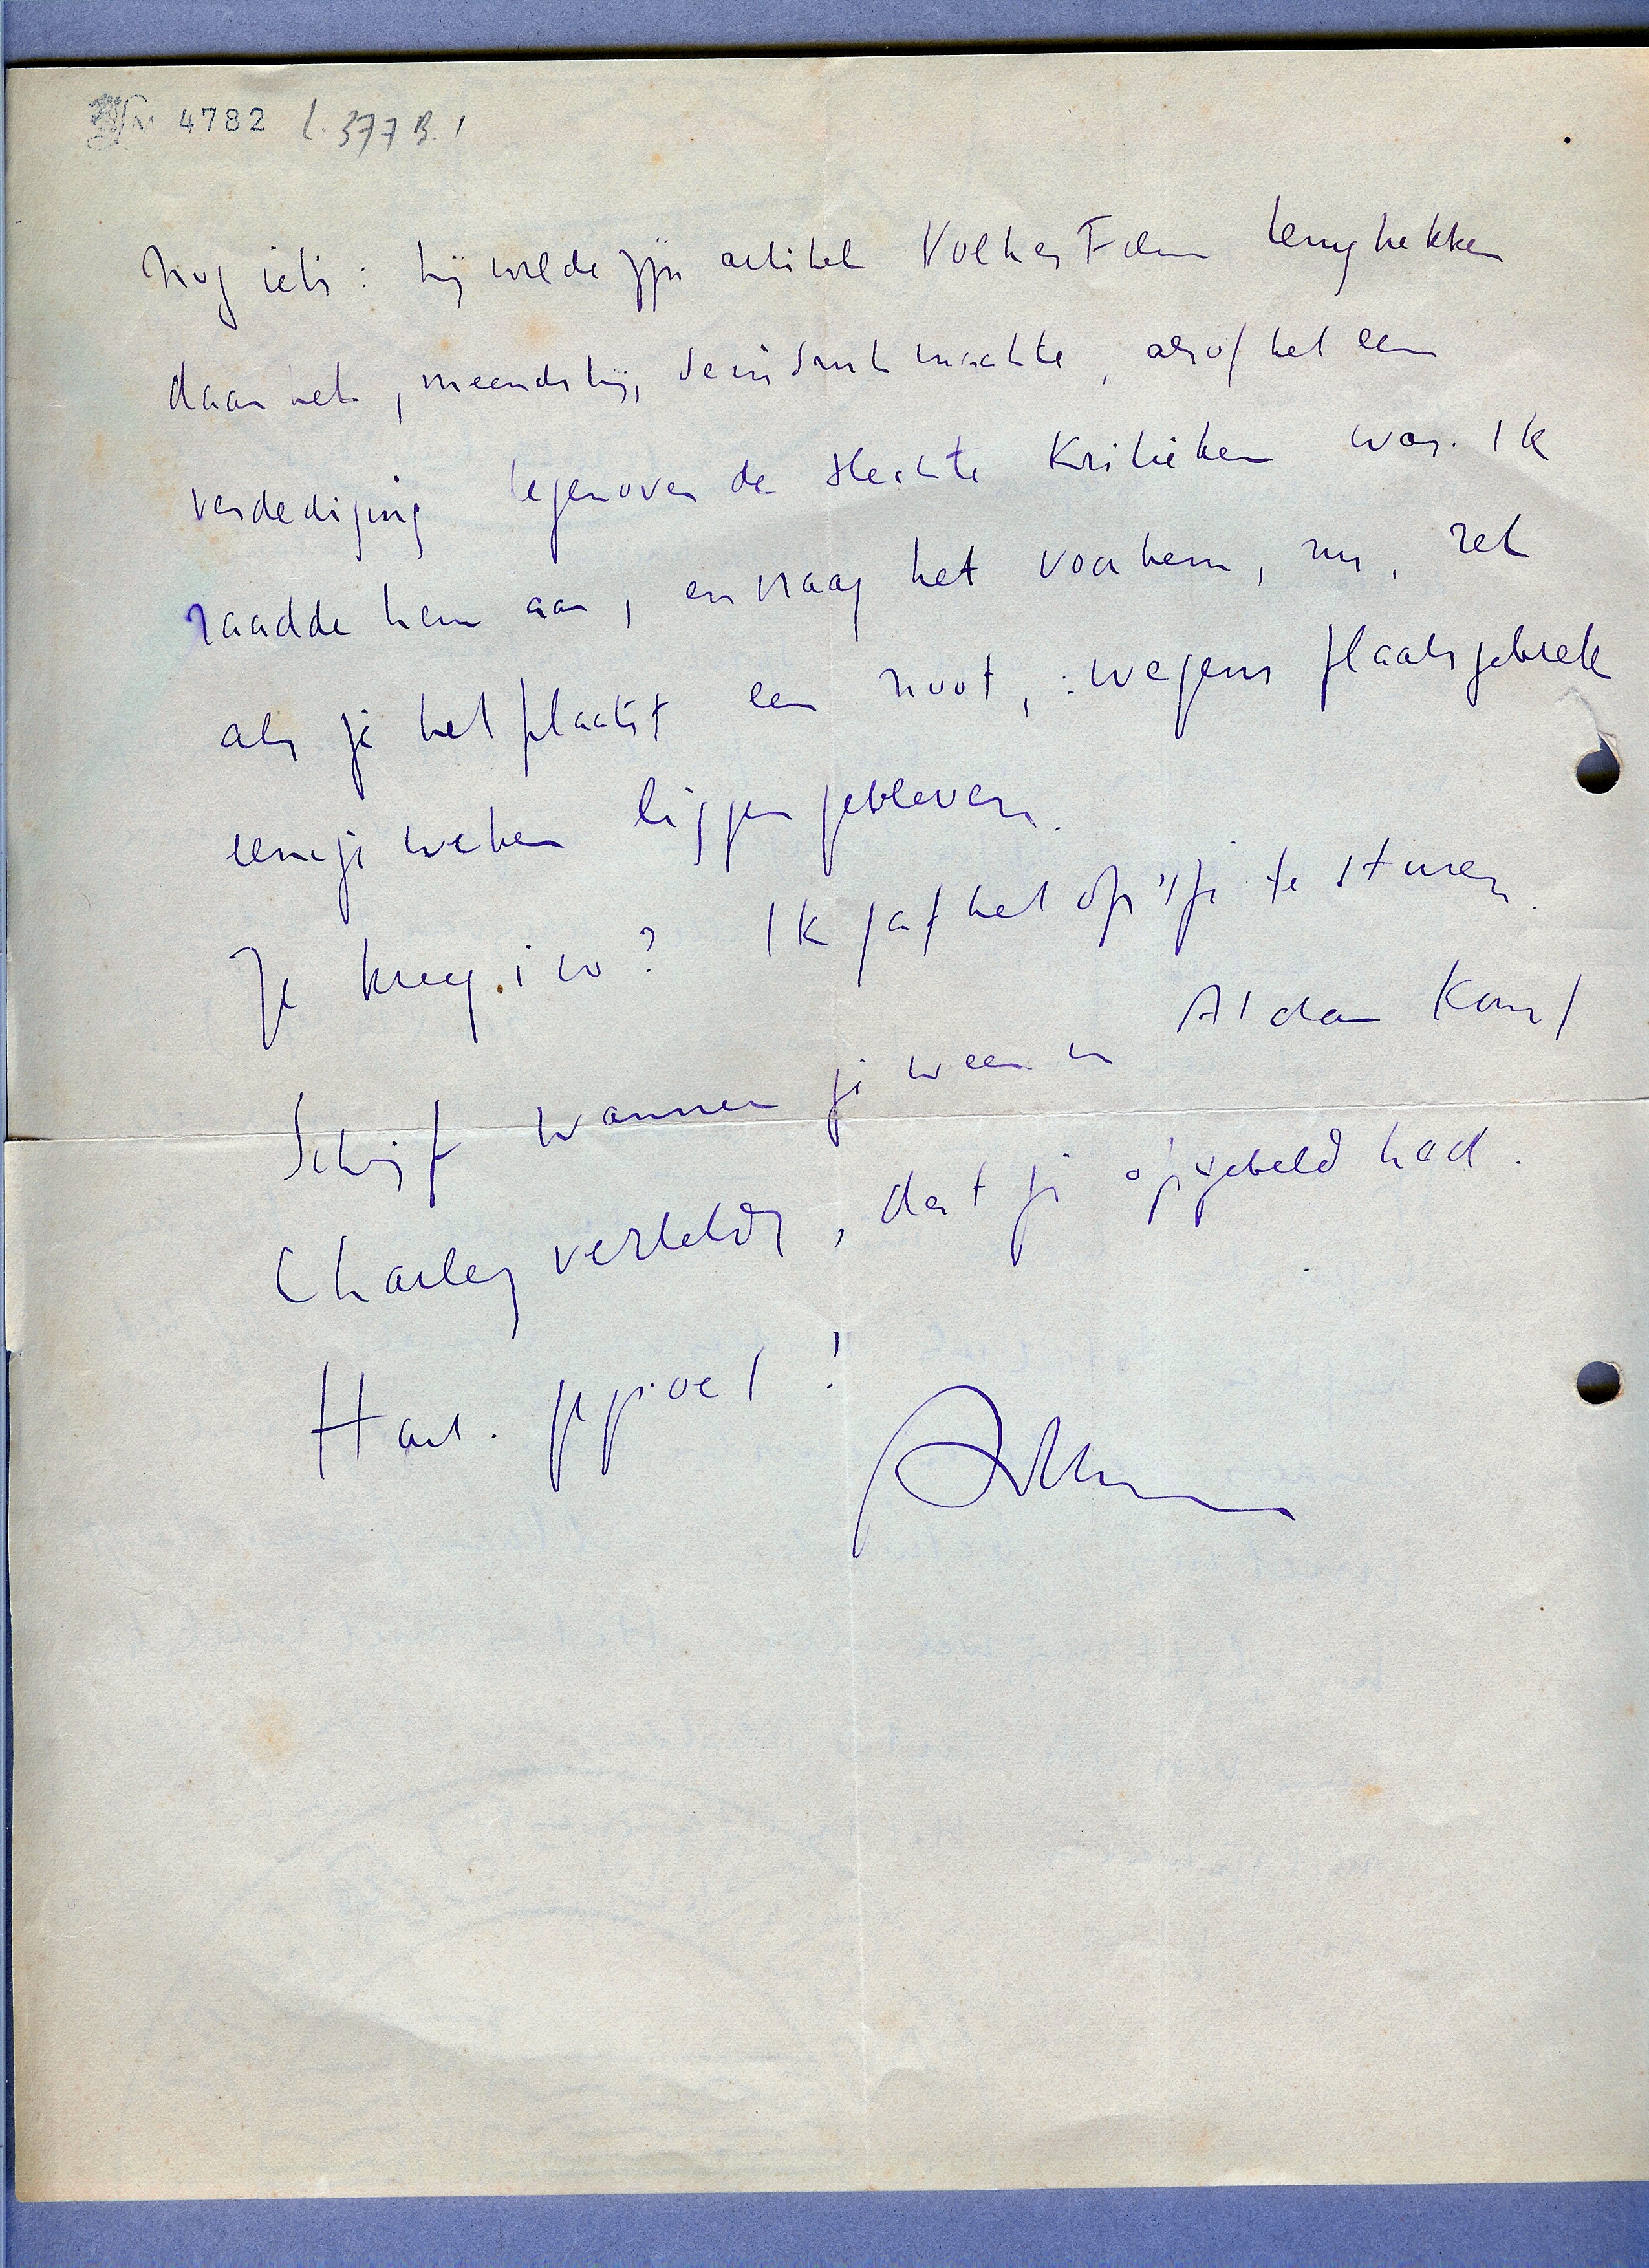 4782 L. 377 B. 1
Nog iets: hij wilde zijn artikel Volk en Film terugtrekken
daar het, meende hij, de indruk maakte, alsof het een
verdediging tegenover de slechte Kritieken was. Ik
raadde hem aan, en vraag het voor hem, nu, zet
als je het plaatst een noot,: wegens plaatsgebrek
eenige weken liggen gebleven.
Je kreeg i w? Ik gaf het op 't je te sturen.
Schrijf wanneer je weer in A'dam komt
Charley vertelde, dat je opgebeld had.
Hart. gegroet!